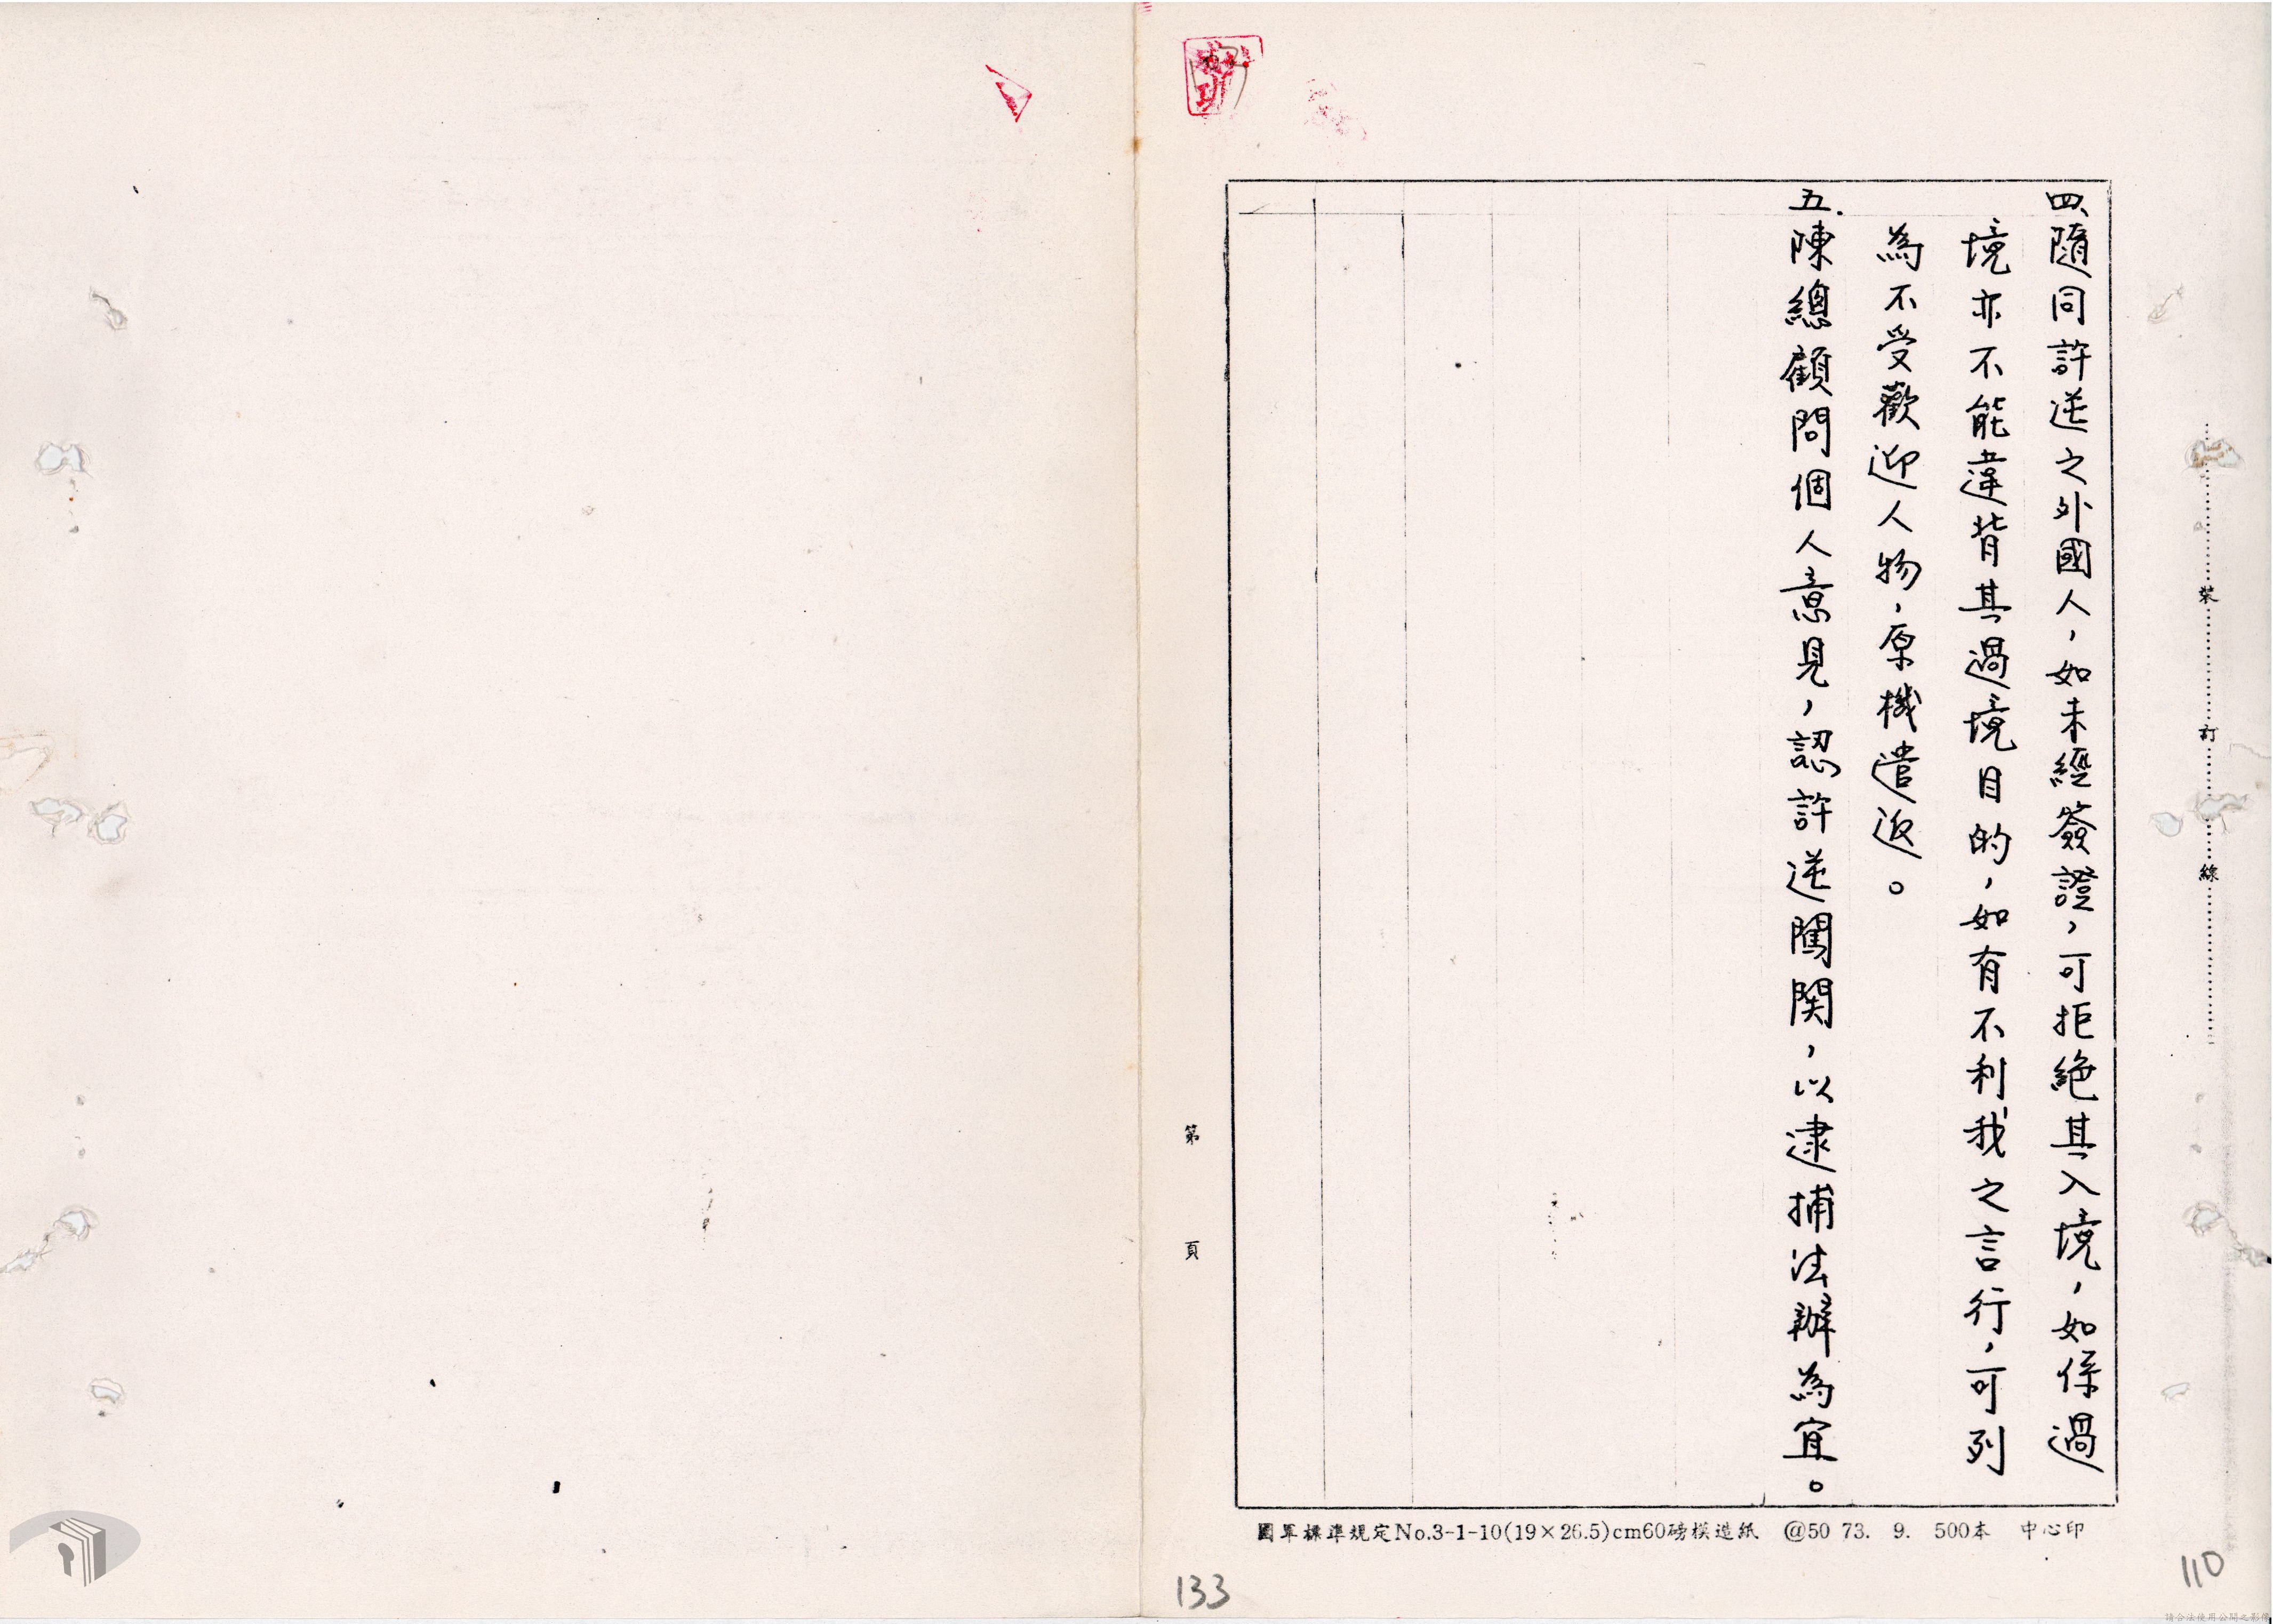 四、隨同許逆之外國人，如未經簽證，可拒絕其入境，如係過
境亦不能違背其過境目的，如有不利我之言行，可列
為不受歡迎人物，原機遣返。
五.陳總顧問個人意見，認許逆闖関，以逮捕法辦為宜。
裝訂線
第 頁
國軍標準規定No.3-1-10(19×26.5)cm60磅模造紙 @50 73. 9. 500本 中心印
133
110
請合法使用公開之影像